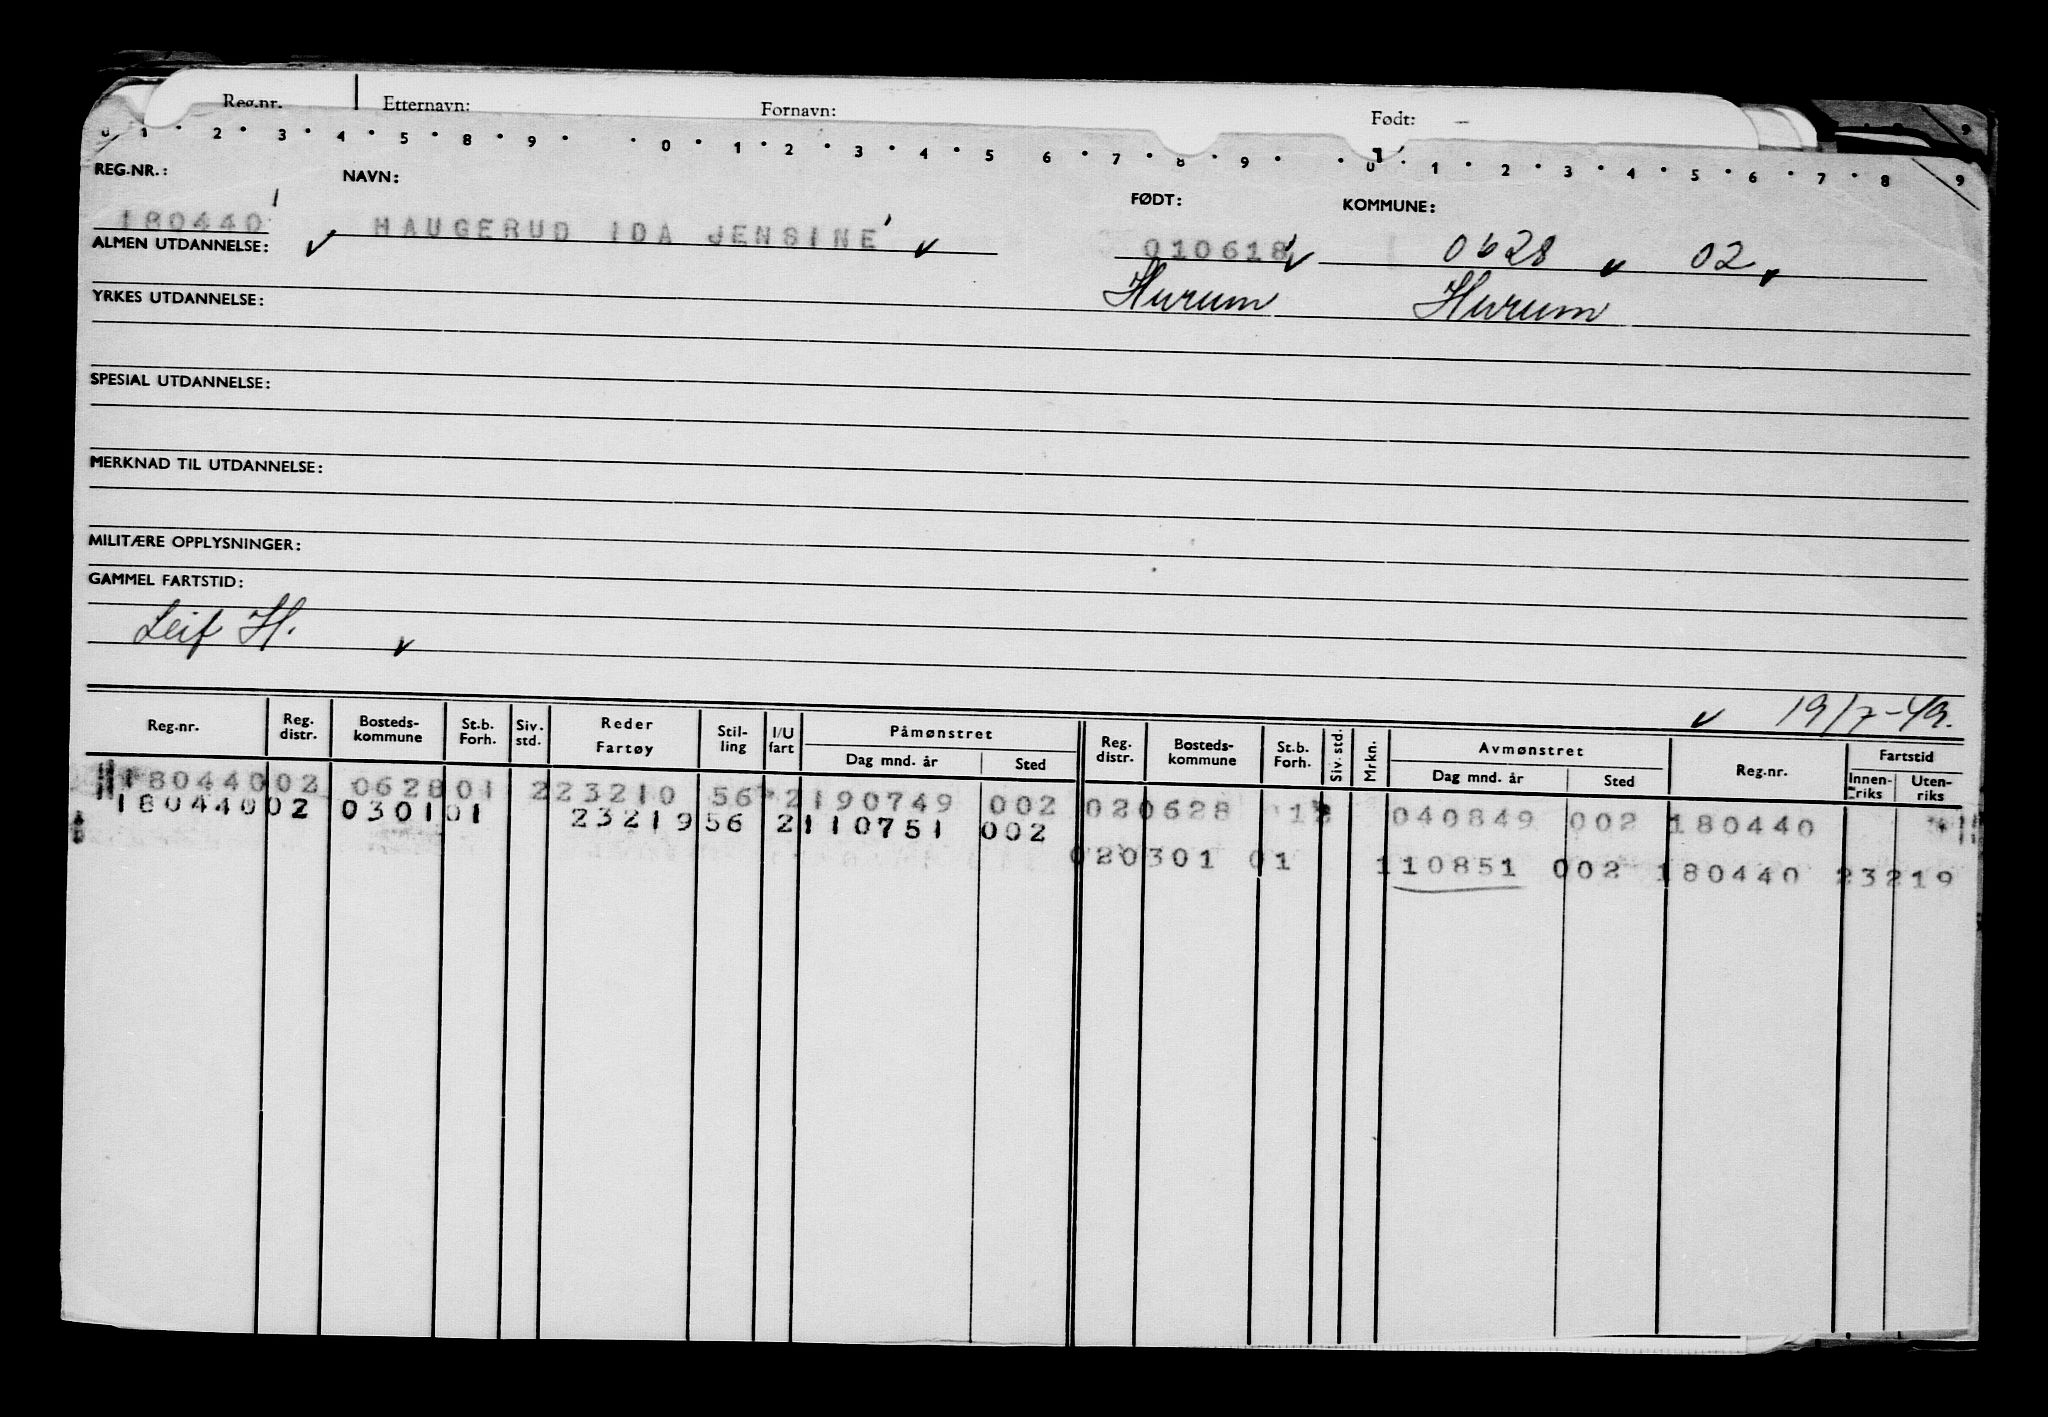 Reg.nr. Etternavn: Fornavn: Født:
0 1 2 3 4 5 8 9 0 1 2 3 4 5 6 7 8 9 0 1 2 3 4 5 6 7 8 9
REG.NR.: NAVN: FØDT: KOMMUNE:
180440 HAUGERUD IDA JENSINE 010618 0628 02
ALMEN UTDANNELSE: Hurum Hurum
YRKES UTDANNELSE:
SPESIAL UTDANNELSE:
MERKNAD TIL UTDANNELSE:
MILITÆRE OPPLYSNINGER:
GAMMEL FARTSTID:
Leif H.
19/7-49.
Reg.nr. Reg. distr. Bosteds-kommune St.b. Forh. Siv. std. Reder Fartøy Stil-ling I/U fart Påmønstret Dag mnd. år Sted Reg. distr. Bosteds-kommune St.b. Forh. Siv. std. Mrkn. Avmønstret Dag mnd. år Sted Reg.nr. Fartstid Innen-riks Uten-riks
180440 02 0628 01 2 23210 56 2 190749 002 02 0628 01 040849 002 180440
180440 02 0301 01 23219 56 2 110751 002
02 0301 01 110851 002 180440 23219